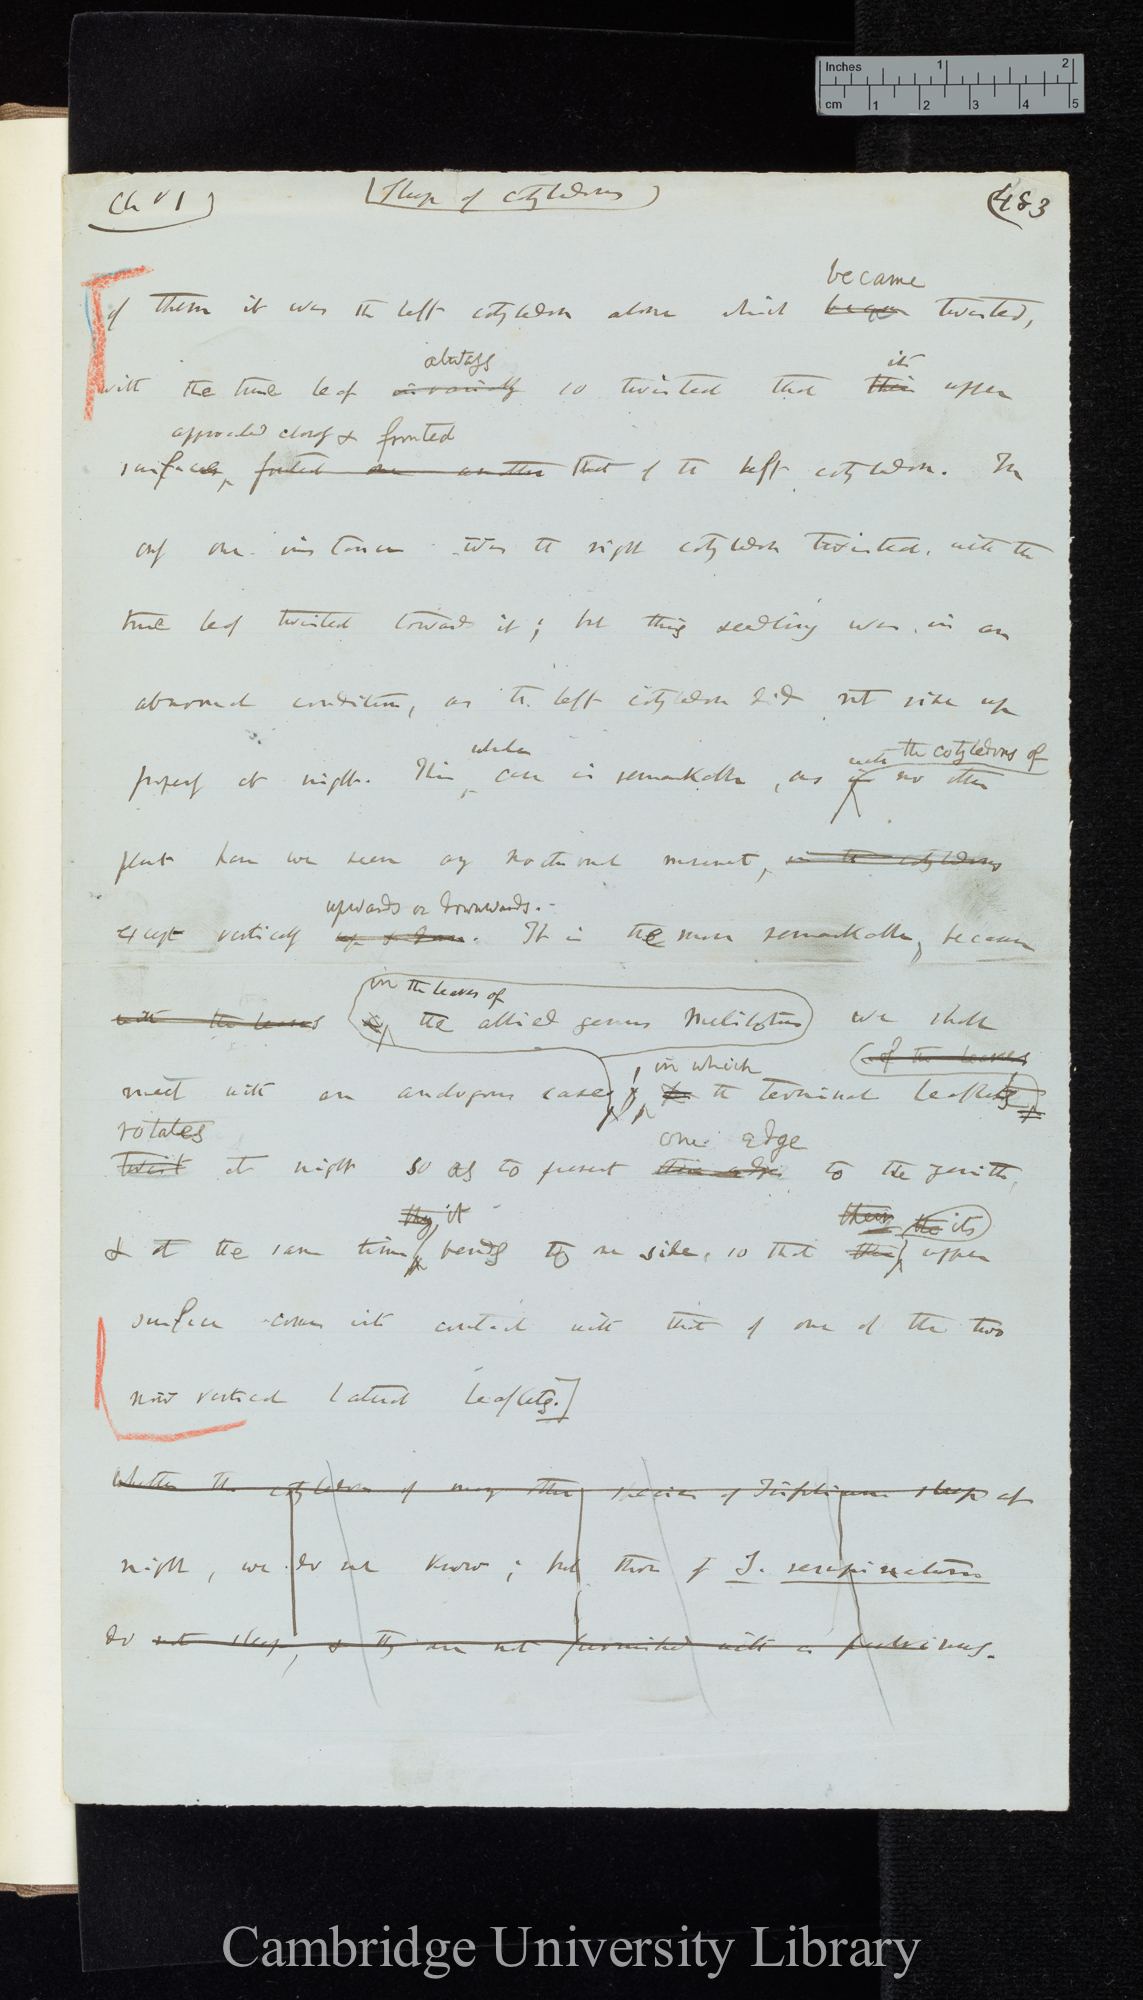 Inches 1 2
cm 1 2 3 4 5
Ch VI) (Sleep of Cotyledons) (483
became
of them it was the left cotyledon alone which began twisted,
always its
with the true leaf invariably so twisted that their upper
approached closely & fronted
surfaces, fronted one another that of the left cotyledon. In
only one instance was the right cotyledon twisted, with the
true leaf twisted towards it; but this seedling was in an
abnormal condition, as the left cotyledon did not rise up
whole with the cotyledons of
properly at night. This case is remarkable, as in no other
plant have we seen any nocturnal movement, in the cotyledons
upwards or downwards.
except vertically up & down. It is the more remarkable, because
in the leaves of
with the leaves in the allied genus Melilotus we shall
in which of the leaves
meet with an analogous case; the terminal leaflets
rotates one edge
twist at night so as to present their edges to the zenith,
they it their the its
& at the same time bends to one side, so that their upper
surface comes into contact with that of one of the two
now vertical lateral leaflets.]
Whether the cotyledons of many other species of Trifolium sleep at
night, we do not know; but those of T. resupinatum
do not sleep, & they are not furnished with a pulvinus.
Cambridge University Library